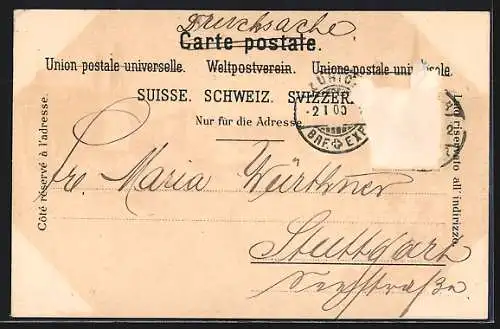 Drucksache
Carte postale.
Union postale universelle. Weltpostverein. Unione postale universale.
SUISSE. SCHWEIZ. SVIZZER
Nur für die Adresse
Côté réservé à l'adresse.
Lato riservato all' indirizzo.
ZÜRIC
-2.I.00
BRF. EXP
Frl. Maria Würthner
Stuttgart
Seestraße.